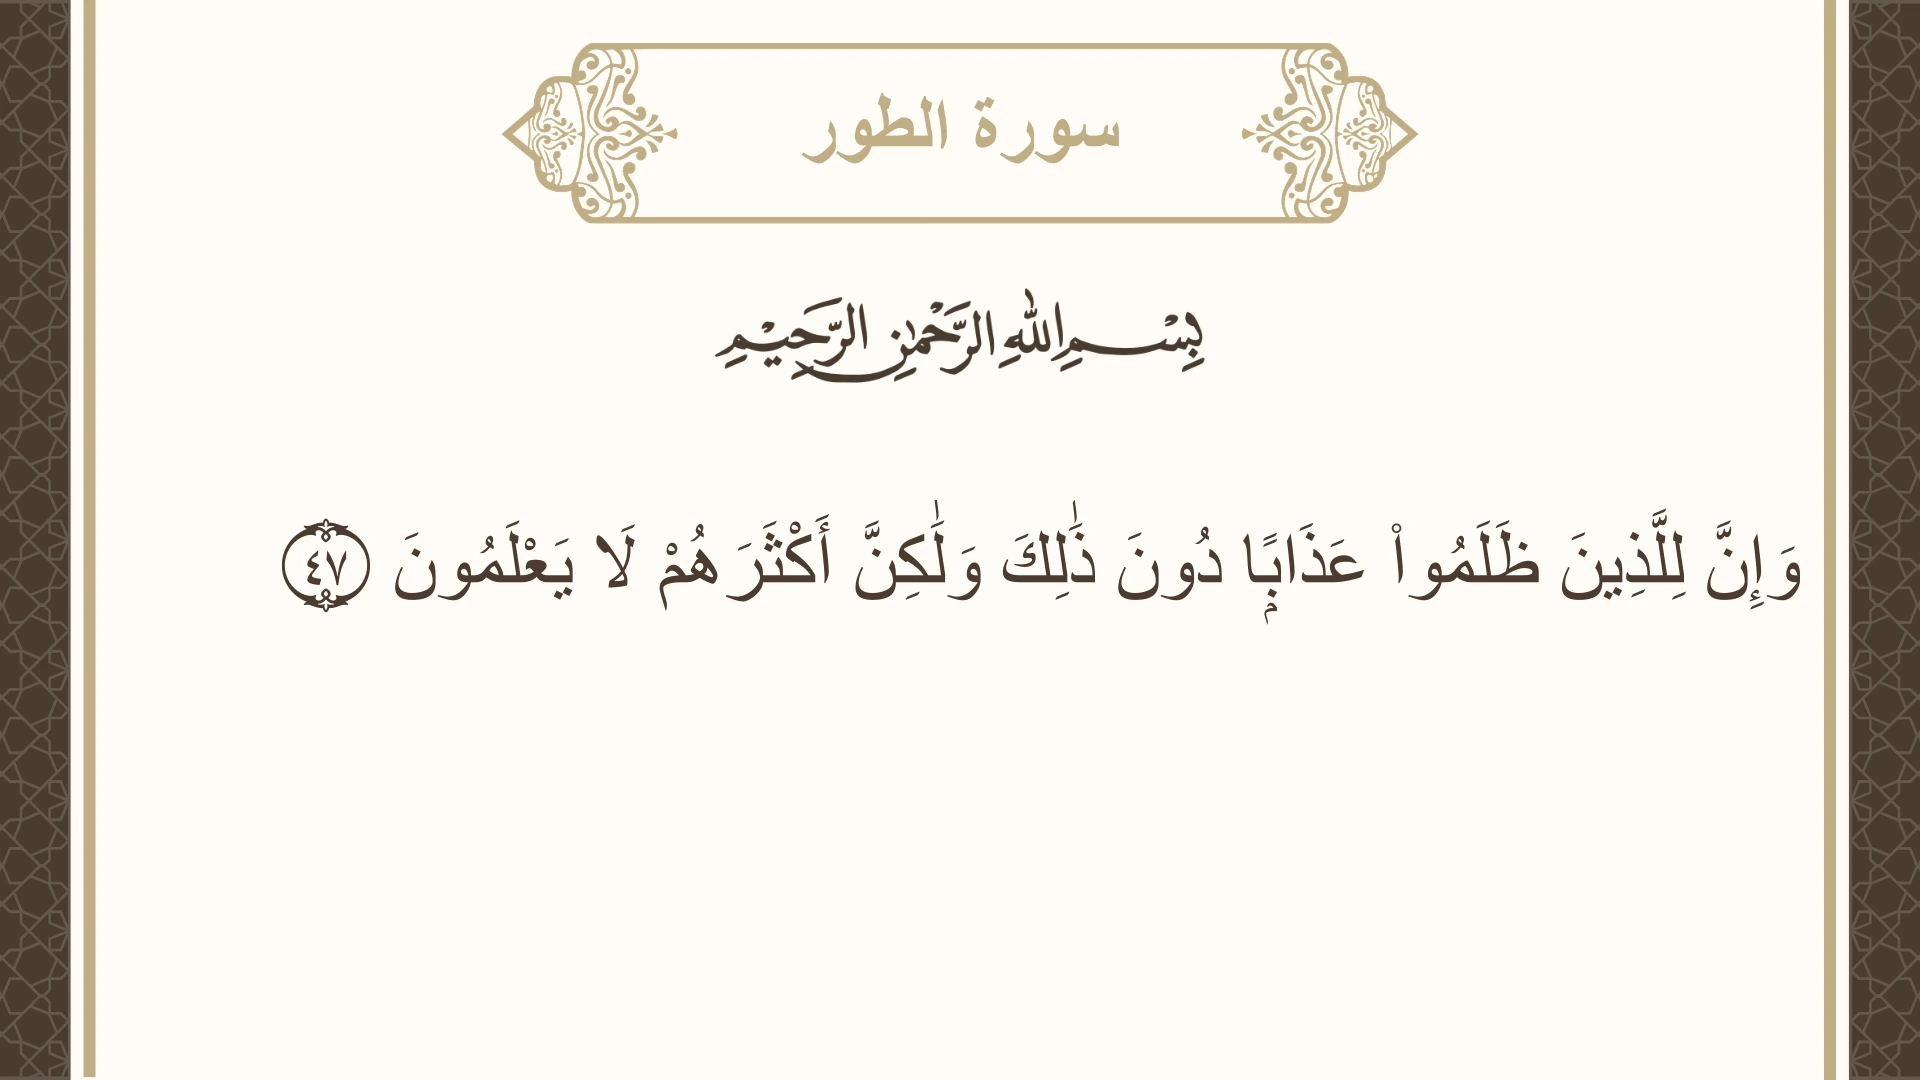 سورة الطور
بِسْمِ اللهِ الرَّحْمٰنِ الرَّحِيْمِ
وَإِنَّ لِلَّذِينَ ظَلَمُوا۟ عَذَابًۭا دُونَ ذَٰلِكَ وَلَٰكِنَّ أَكْثَرَهُمْ لَا يَعْلَمُونَ ٤٧